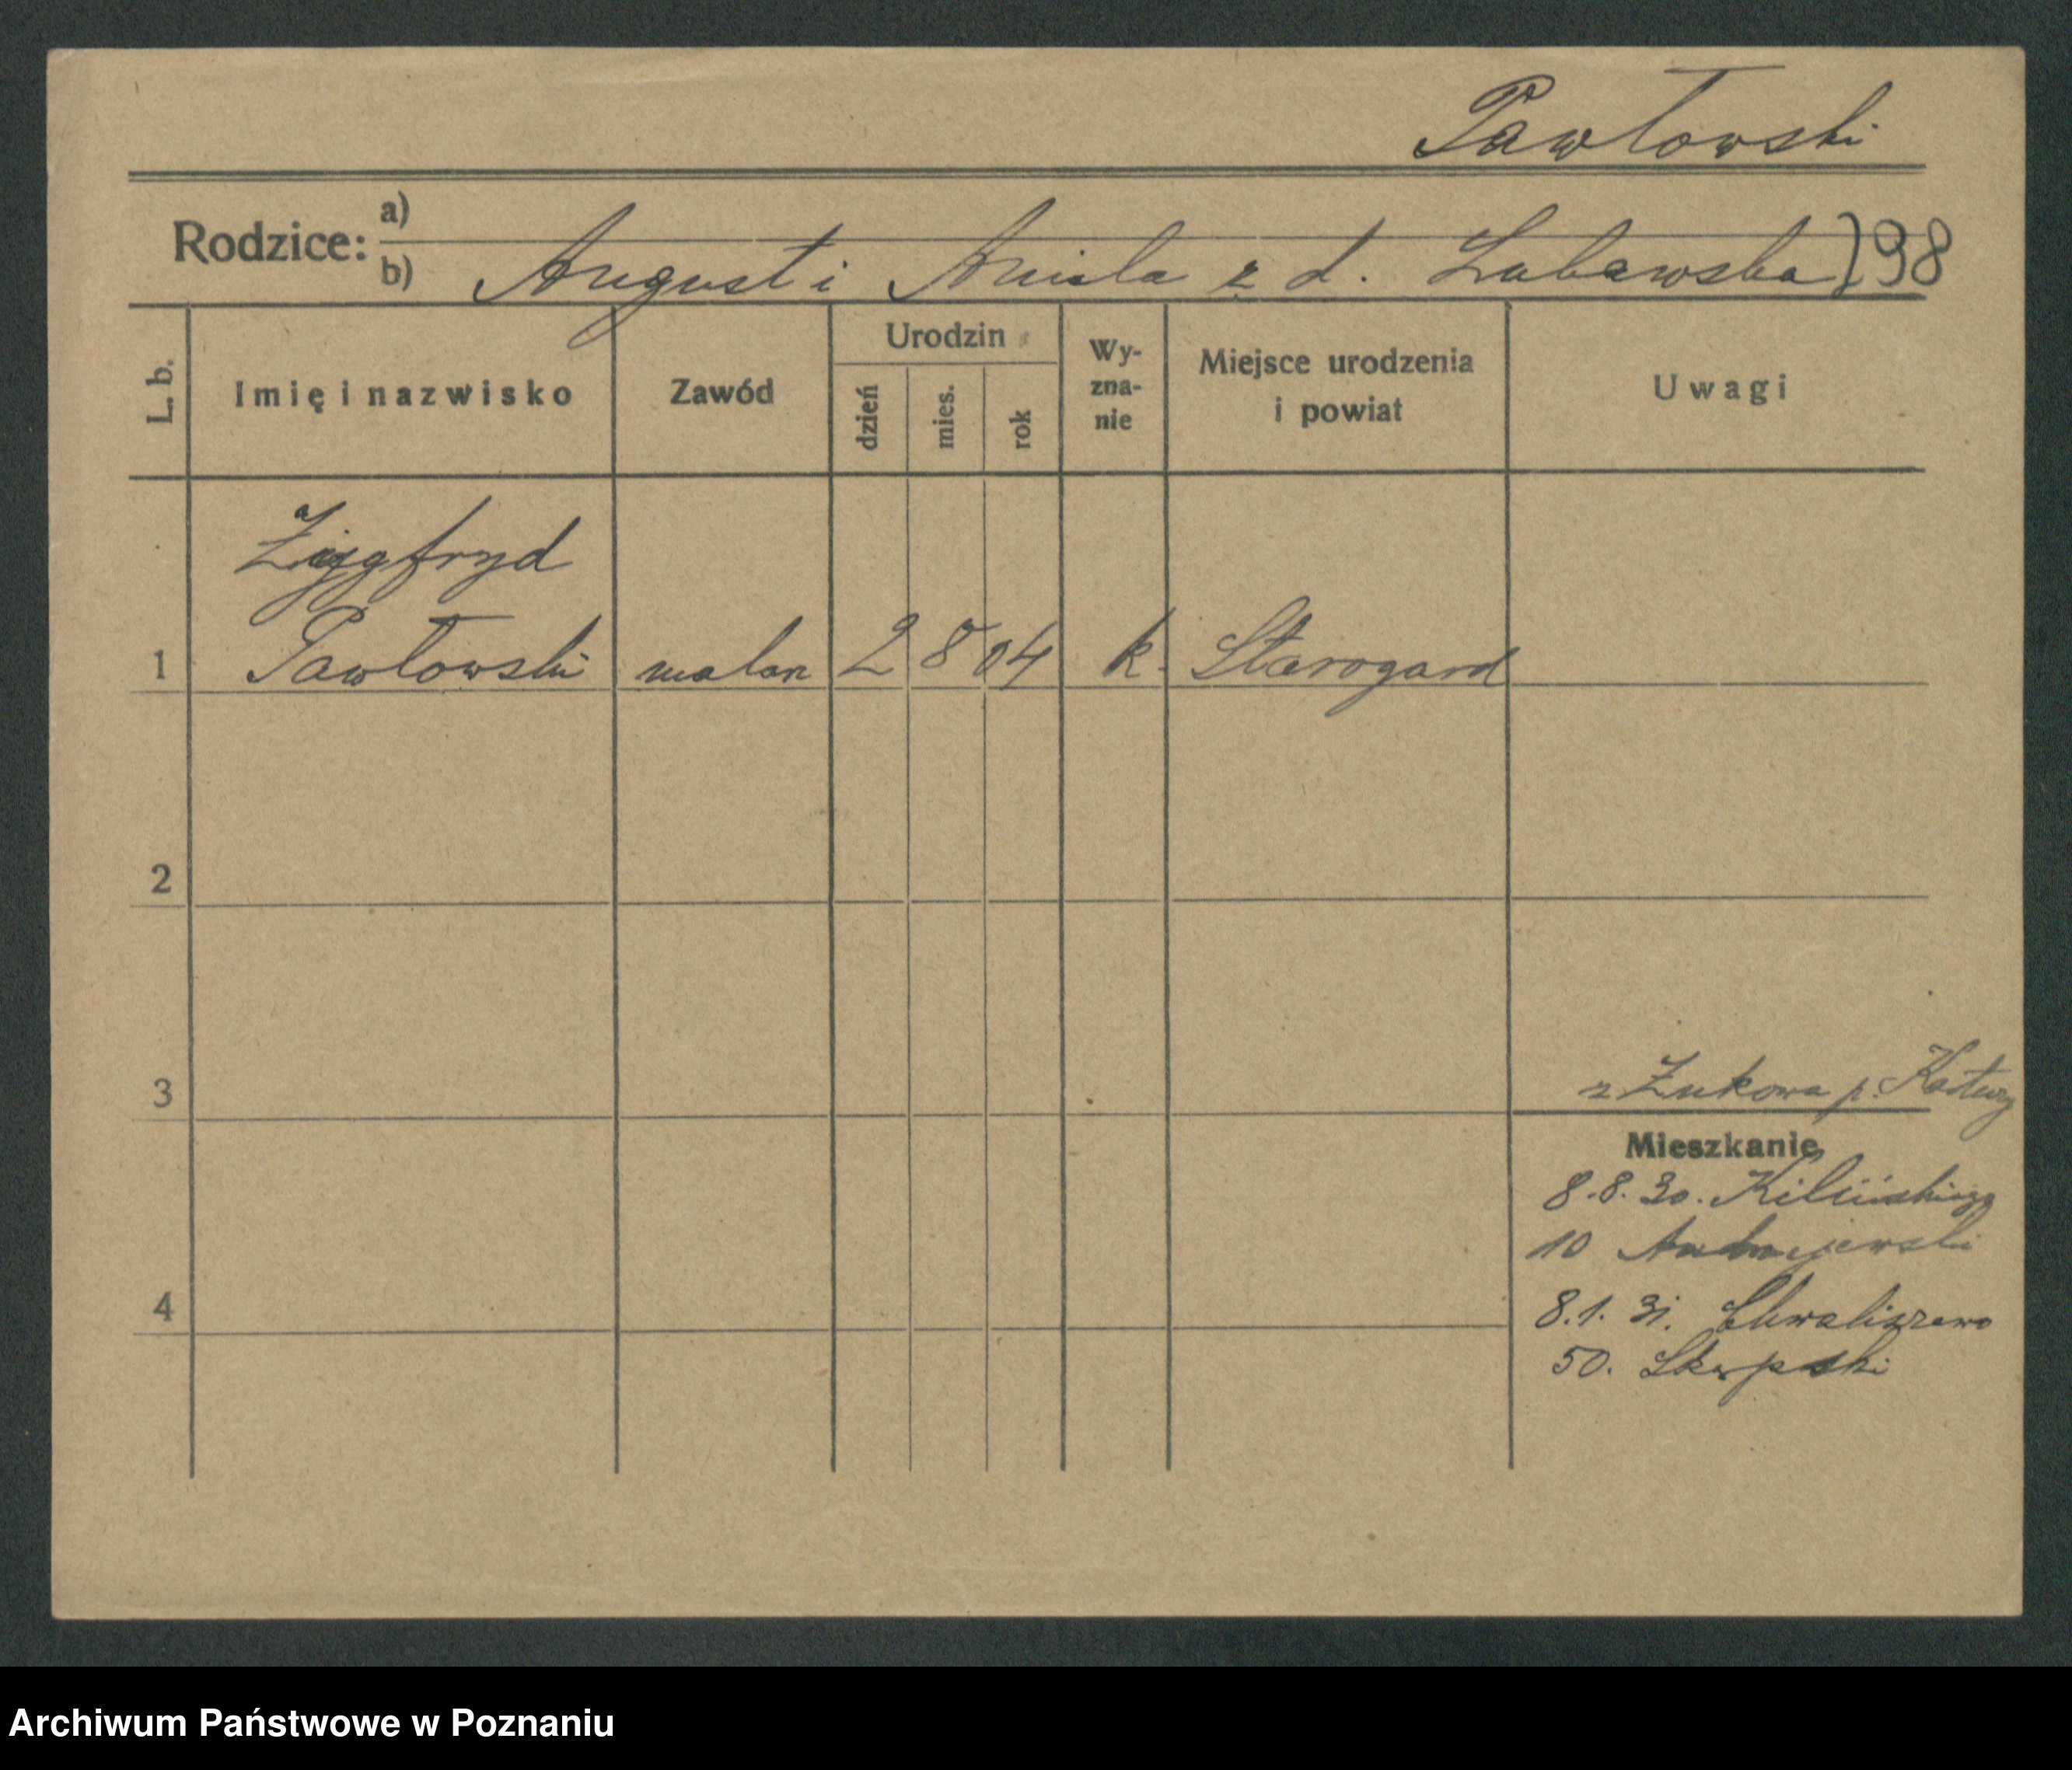 Pawłowski
Rodzice: a)
b) August i Aniela z d. Lubawska }98
L. b. Imię i nazwisko Zawód Urodzin dzień mies. rok Wy-zna-nie Miejsce urodzenia i powiat Uwagi
Zygfryd
1 Pawłowski malarz 2 8 04 k. Starogard
2
3 z Żukowa p. Kartuzy
Mieszkanie
8.8.30. Kilińskiego
10 Andrzejewski
8.1.31. Chwaliszewo
4
50.
Archiwum Państwowe w Poznaniu